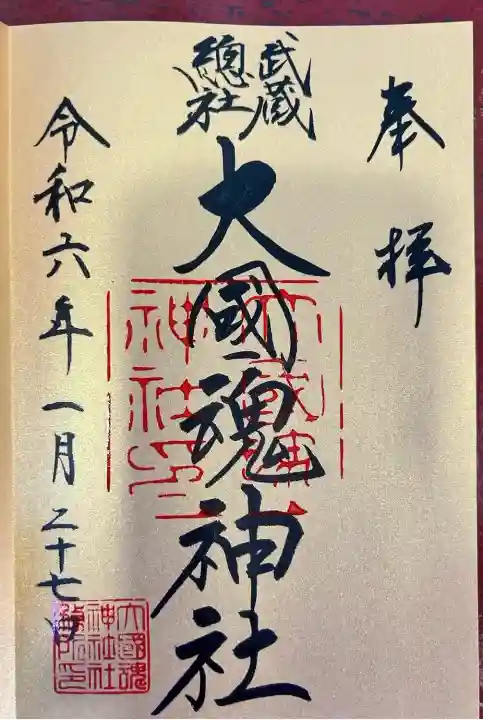 奉拝
武蔵
總社
大國魂神社
令和六年一月二十七日
大國魂
神社社
務所印